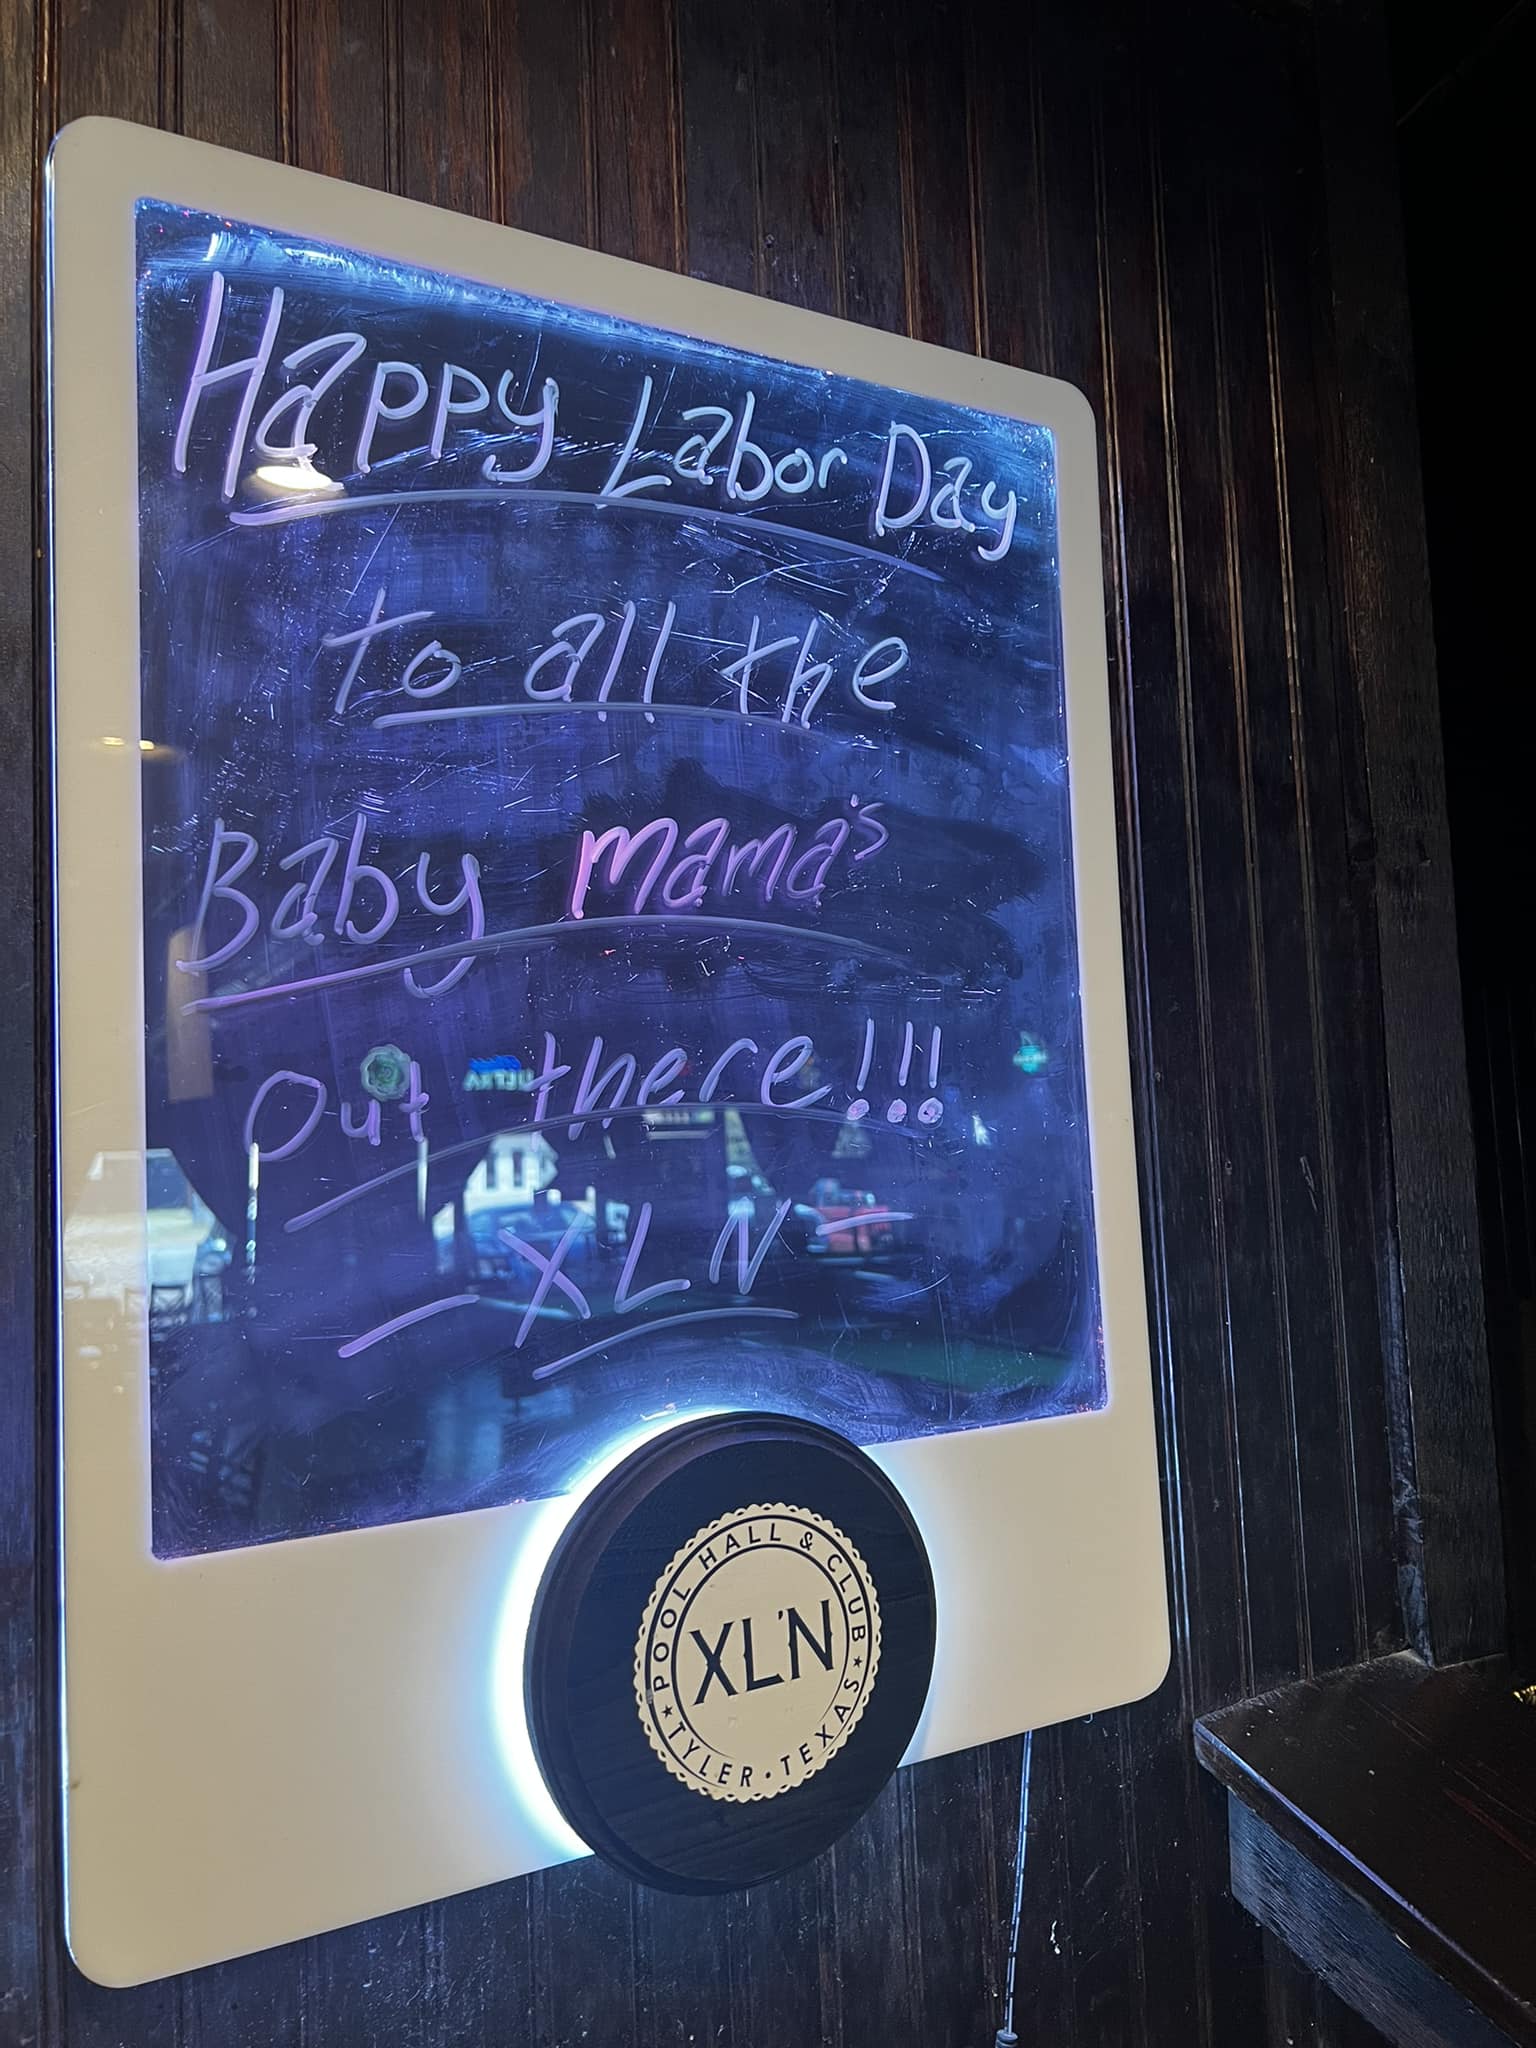 Happy Labor Day
to all the
Baby mama's
Out there!!!
- XLN -
POOL HALL & CLUB
XL'N
★ TYLER • TEXAS ★